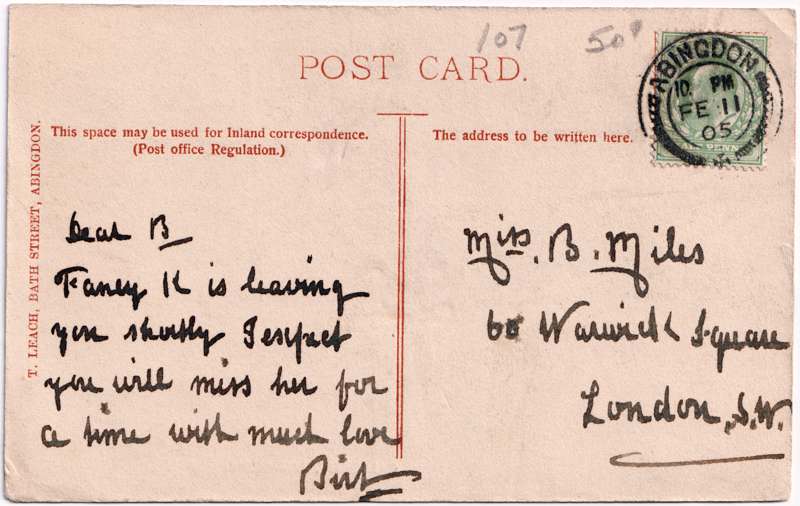 107 50
POST CARD.
ABINGDON
10. PM
FE 11
05
PENNY
This space may be used for Inland correspondence.
(Post office Regulation.)
The address to be written here.
T. LEACH, BATH STREET, ABINGDON.
Dear B
Fancy K is leaving
you shortly I expect
you will miss her for
a time with much love
Birt
Miss. B. Miles
60 Warwick Square
London, S.W.